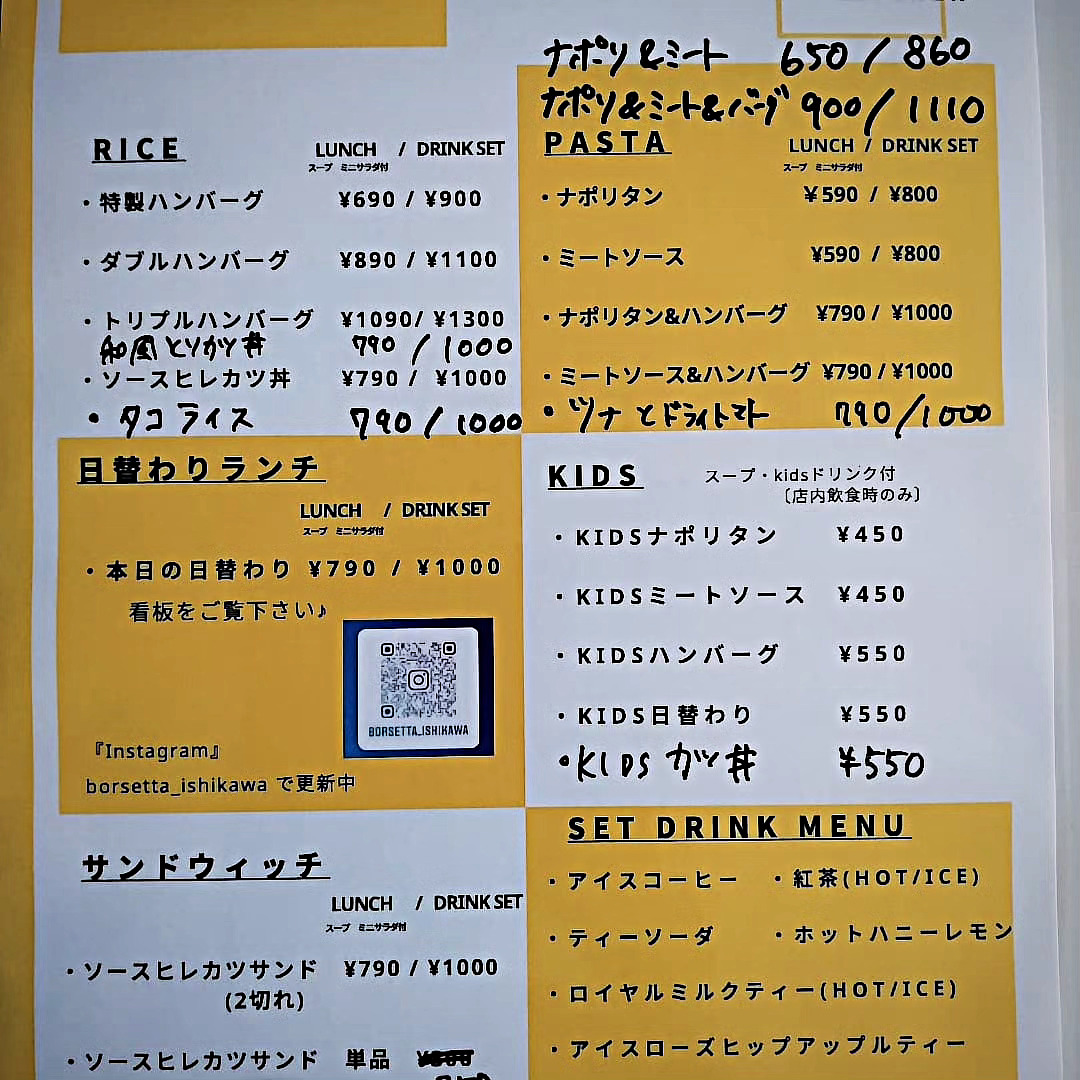 RICE
LUNCH / DRINK SET
スープ ミニサラダ付
・特製ハンバーグ ¥690 / ¥900
・ダブルハンバーグ ¥890 / ¥1100
・トリプルハンバーグ ¥1090/ ¥1300
和風とりカツ丼 790 / 1000
・ソースヒレカツ丼 ¥790 / ¥1000
・タコライス 790 / 1000
ナポリ&ミート 650 / 860
ナポリ&ミート&バーグ 900 / 1110
PASTA
LUNCH / DRINK SET
スープ ミニサラダ付
・ナポリタン ¥590 / ¥800
・ミートソース ¥590 / ¥800
・ナポリタン&ハンバーグ ¥790 / ¥1000
・ミートソース&ハンバーグ ¥790 / ¥1000
・ツナとドライトマト 790 / 1000
日替わりランチ
LUNCH / DRINK SET
スープ ミニサラダ付
・本日の日替わり ¥790 / ¥1000
看板をご覧下さい♪
BORSETTA_ISHIKAWA
『Instagram』
borsetta_ishikawa で更新中
KIDS スープ・kidsドリンク付
〔店内飲食時のみ〕
・KIDSナポリタン ¥450
・KIDSミートソース ¥450
・KIDSハンバーグ ¥550
・KIDS日替わり ¥550
・KIDS カツ丼 ¥550
サンドウィッチ
LUNCH / DRINK SET
スープ ミニサラダ付
・ソースヒレカツサンド ¥790 / ¥1000
(2切れ)
・ソースヒレカツサンド 単品
SET DRINK MENU
・アイスコーヒー ・紅茶(HOT/ICE)
・ティーソーダ ・ホットハニーレモン
・ロイヤルミルクティー(HOT/ICE)
・アイスローズヒップアップルティー